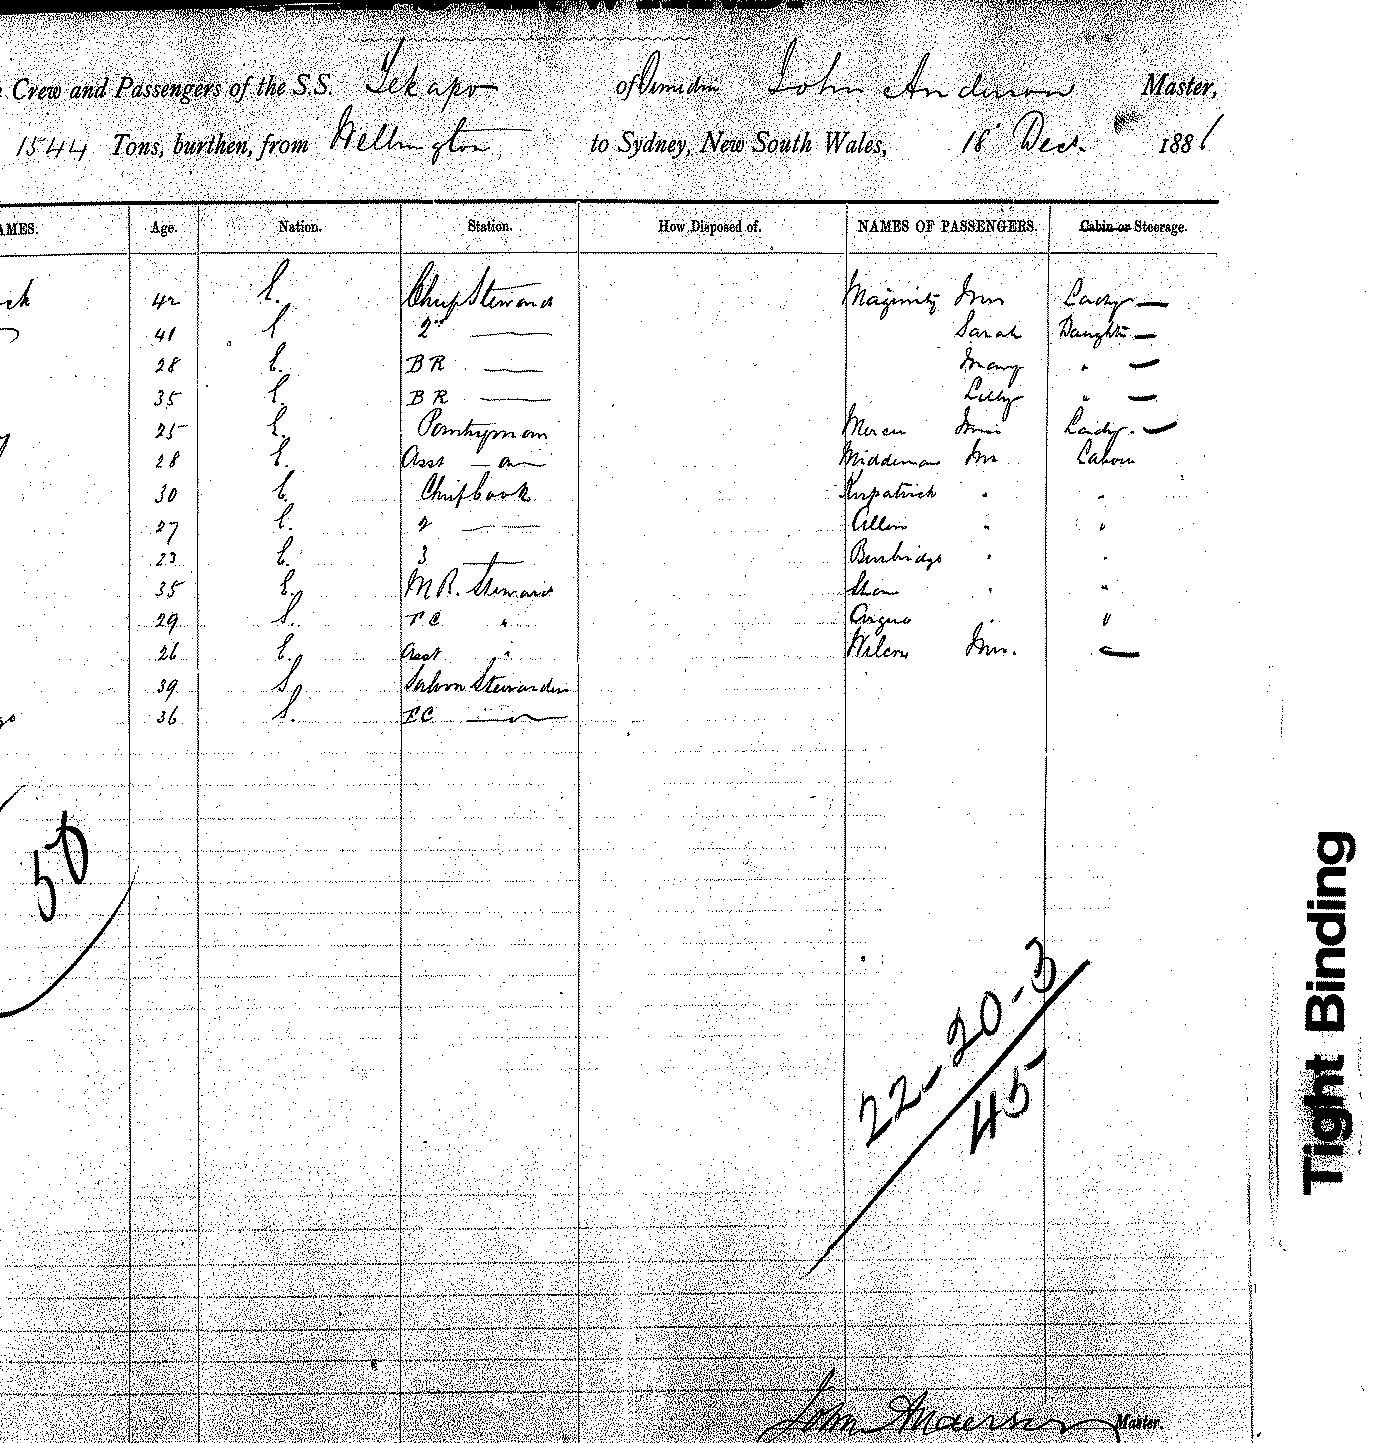 Crew and Passengers of the S.S. Tekapo of Dunedin John Anderson Master,
1544 Tons, burthen, from Wellington to Sydney, New South Wales, 18 Decr. 1881
AMES. Age. Nation. Station. How Disposed of. NAMES OF PASSENGERS. Cabin or Steerage.
ck 42 E. Chief Steward Maginnity Mrs Lady —
41 E 2nd —— Sarah Daughter —
28 E. BR —— Mary " —
35 E. BR —— Lilly " —
25 E. Pantryman Mercer Lady. —
28 E. Asst — Middleman Mr Labour
30 E. Chief Cook Kirkpatrick " "
27 E. 2 —— Allen " "
23 E. 3 —— Burbridge " "
35 E. M.R. Steward Shaw " "
29 S. FC " Argue " "
26 E. Asst " Wilcox Mrs. —
39 S. Saloon Stewardess
36 S. FC ——
50
22-20-3
45
John Anderson Master.
Tight Binding